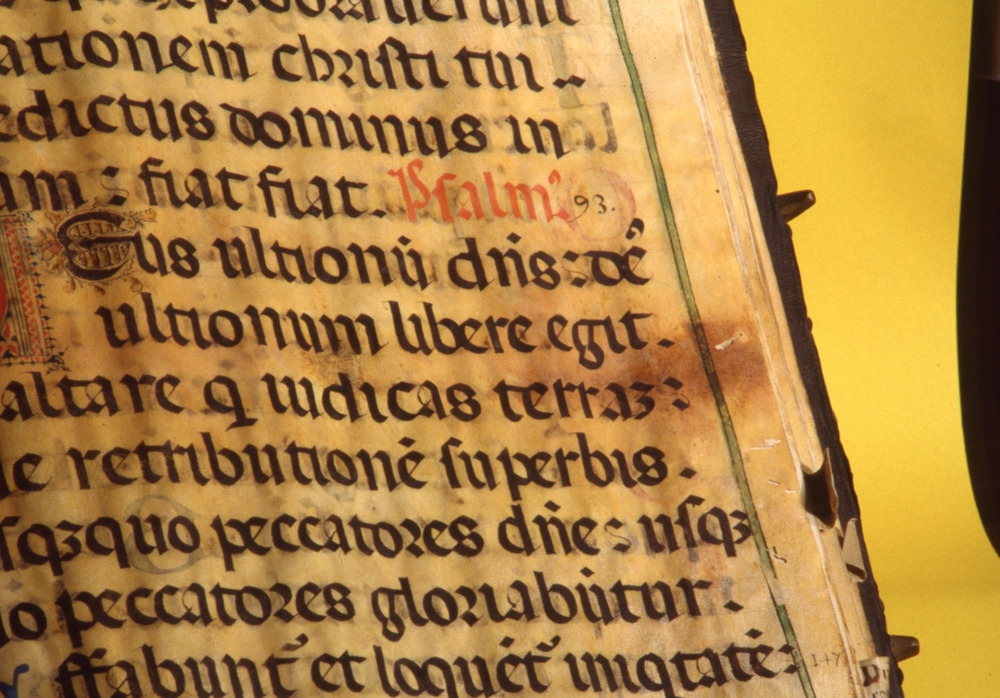 ationem christi tui ..
edictus dominus in
um : fiat fiat. Psalm⁹ 93.
Eus ultionū dn̄s: dē
ultionum libere egit.
altare q iudicas terraʒ:
le retributionē superbis.
sqʒquo peccatores dn̄e: usqʒ
uo peccatores gloriabūtur.
ffabunt et loquēt iniqtatē:
147
D.